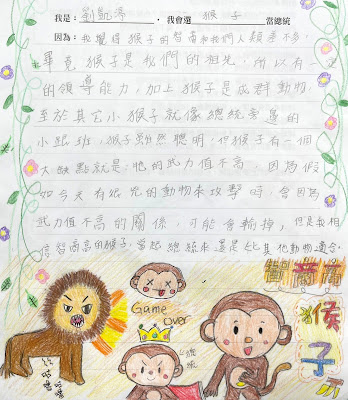 我是：劉凱濟，我會選 猴子 當總統
因為：我覺得猴子的智商和我們人類差不多，
畢竟猴子是我們的祖先，所以有一定
的領導能力，加上猴子是成群動物，
至於其它小猴子就像總統旁邊的
小跟班，猴子雖然聰明，但猴子有一個
大缺點就是：牠的武力值不高，因為假
如今天有很兇的動物來攻擊時，會因為
武力值不高的關係，可能會輸掉，但是我相
信智商高的猴子，當起總統來還是比其他動物適合。
Game
over
總統
猴
子